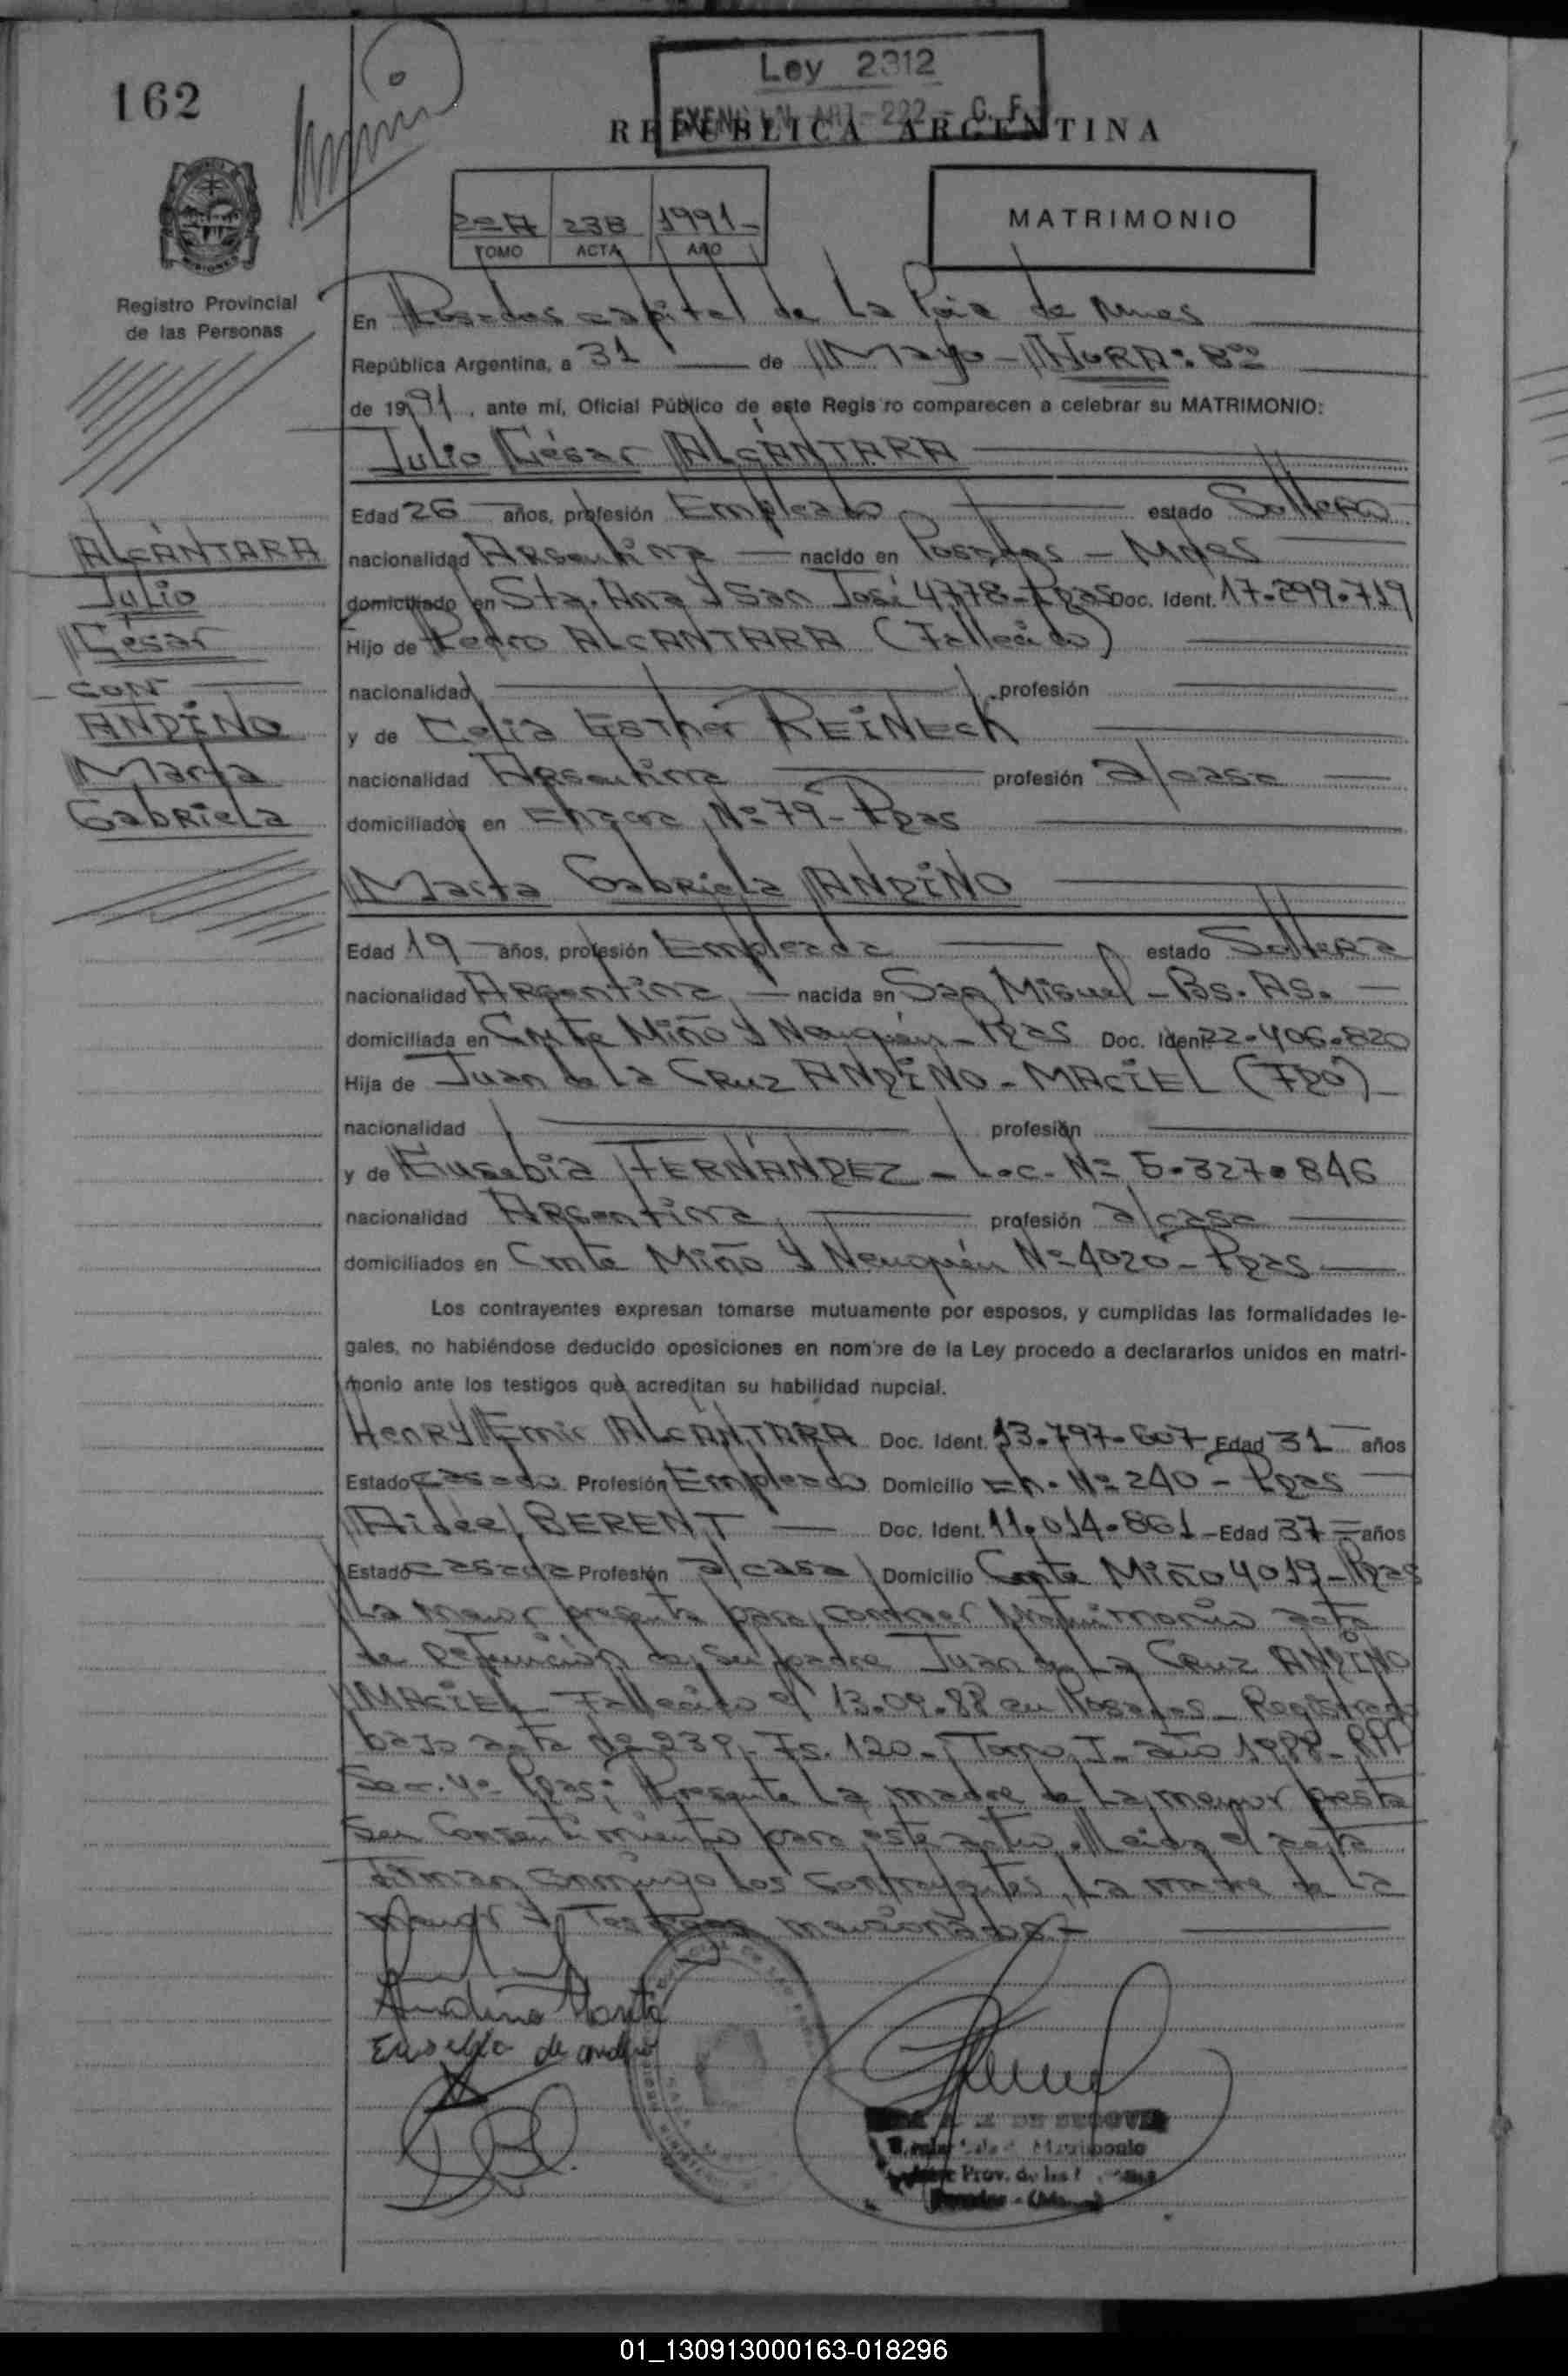 162
Ley 2312
EXENCION ART-222-C.F.
REPUBLICA ARGENTINA
2=A 238 1991-
TOMO ACTA AÑO
MATRIMONIO
Registro Provincial
de las Personas
En Posadas capital de La Pcia de Mnes
República Argentina, a 31 de Mayo - HORA: 8=
de 1991, ante mí, Oficial Público de este Registro comparecen a celebrar su MATRIMONIO:
Julio César ALCÁNTARA
Edad 26 años, profesión Empleado estado Soltero
nacionalidad Argentina nacido en Posadas - Mnes
domiciliado en Sta. Ana y San José 4778-Pdas Doc. Ident. 17.299.719
Hijo de Pedro ALCANTARA (Fallecido)
nacionalidad profesión
y de Celia Esther REINECK
nacionalidad Argentina profesión a/casa
domiciliados en Chacra Nº 79-Pdas
ALCÁNTARA
Julio
César
CON
ANDINO
Marta
Gabriela
Marta Gabriela ANDINO
Edad 19 años, profesión Empleada estado Soltera
nacionalidad Argentina nacida en San Miguel - Bs. As.
domiciliada en Cmte Miño y Neuquén - Pdas Doc. Ident. 22.406.820
Hija de Juan de La Cruz ANDINO - MACIEL (Fdo)
nacionalidad profesión
y de Eusebia FERNÁNDEZ - L.C. Nº 5.327.846
nacionalidad Argentina profesión a/casa
domiciliados en Cmte Miño y Neuquén Nº 4020 - Pdas
Los contrayentes expresan tomarse mutuamente por esposos, y cumplidas las formalidades le-
gales, no habiéndose deducido oposiciones en nombre de la Ley procedo a declararlos unidos en matri-
monio ante los testigos que acreditan su habilidad nupcial.
Henry Emir ALCÁNTARA Doc. Ident. 13.797.607 Edad 31 años
Estado casado Profesión Empleado Domicilio Ch. Nº 240 - Pdas
Aidee BERENT Doc. Ident. 11.014.861 - Edad 37 = años
Estado casada Profesión a/casa Domicilio Cmte Miño 4019 - Pdas
La menor presenta para contraer Matrimonio acta
de defunción de su padre Juan de La Cruz ANDINO
MACIEL Fallecido el 13.09.88 en Posadas - Registrado
bajo acta Nº 239 - Fs. 120 - Tomo I - año 1988 - RPP
Sec. 4º Pdas; Presente La madre de La menor presta
Su Consentimiento para este acto. Leida el acta
firman conmigo Los contrayentes, La madre de La
menor y Testigos mencionados -
Andino Marta
Eusebia de andino
DE SEGOVIA
Matrimonio
Prov. de las
Posadas - (Mnes)
01_130913000163-018296